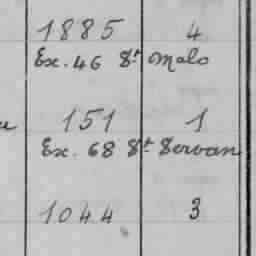 1885 4
Ex. 46 St Malo
151 1
Ex. 68 St Servan
1044 3